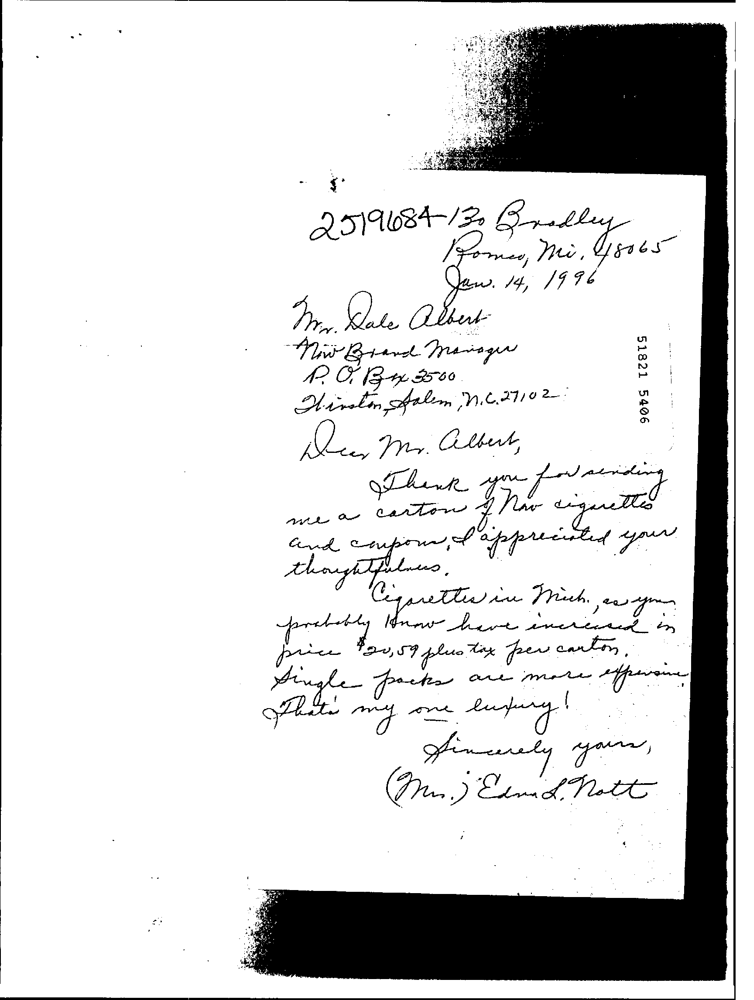 2519684-130 Bradley
Romeo, Mi. 48065
Jan. 14, 1996
Mr. Dale Albert
Now Brand Manager
P. O. Box 3500
Winston, Salem, N.C. 27102
Dear Mr. Albert,
Thank you for sending
me a carton of Now cigarettes
and coupons, I appreciated your
thoughtfulness.
Cigarettes in Mich., as you
probably know have increased in
price $20,59 plus tax per carton.
Single packs are more expensive
That's my one luxury!
Sincerely yours,
(Mrs.) Edna L. Nott
51821 5406